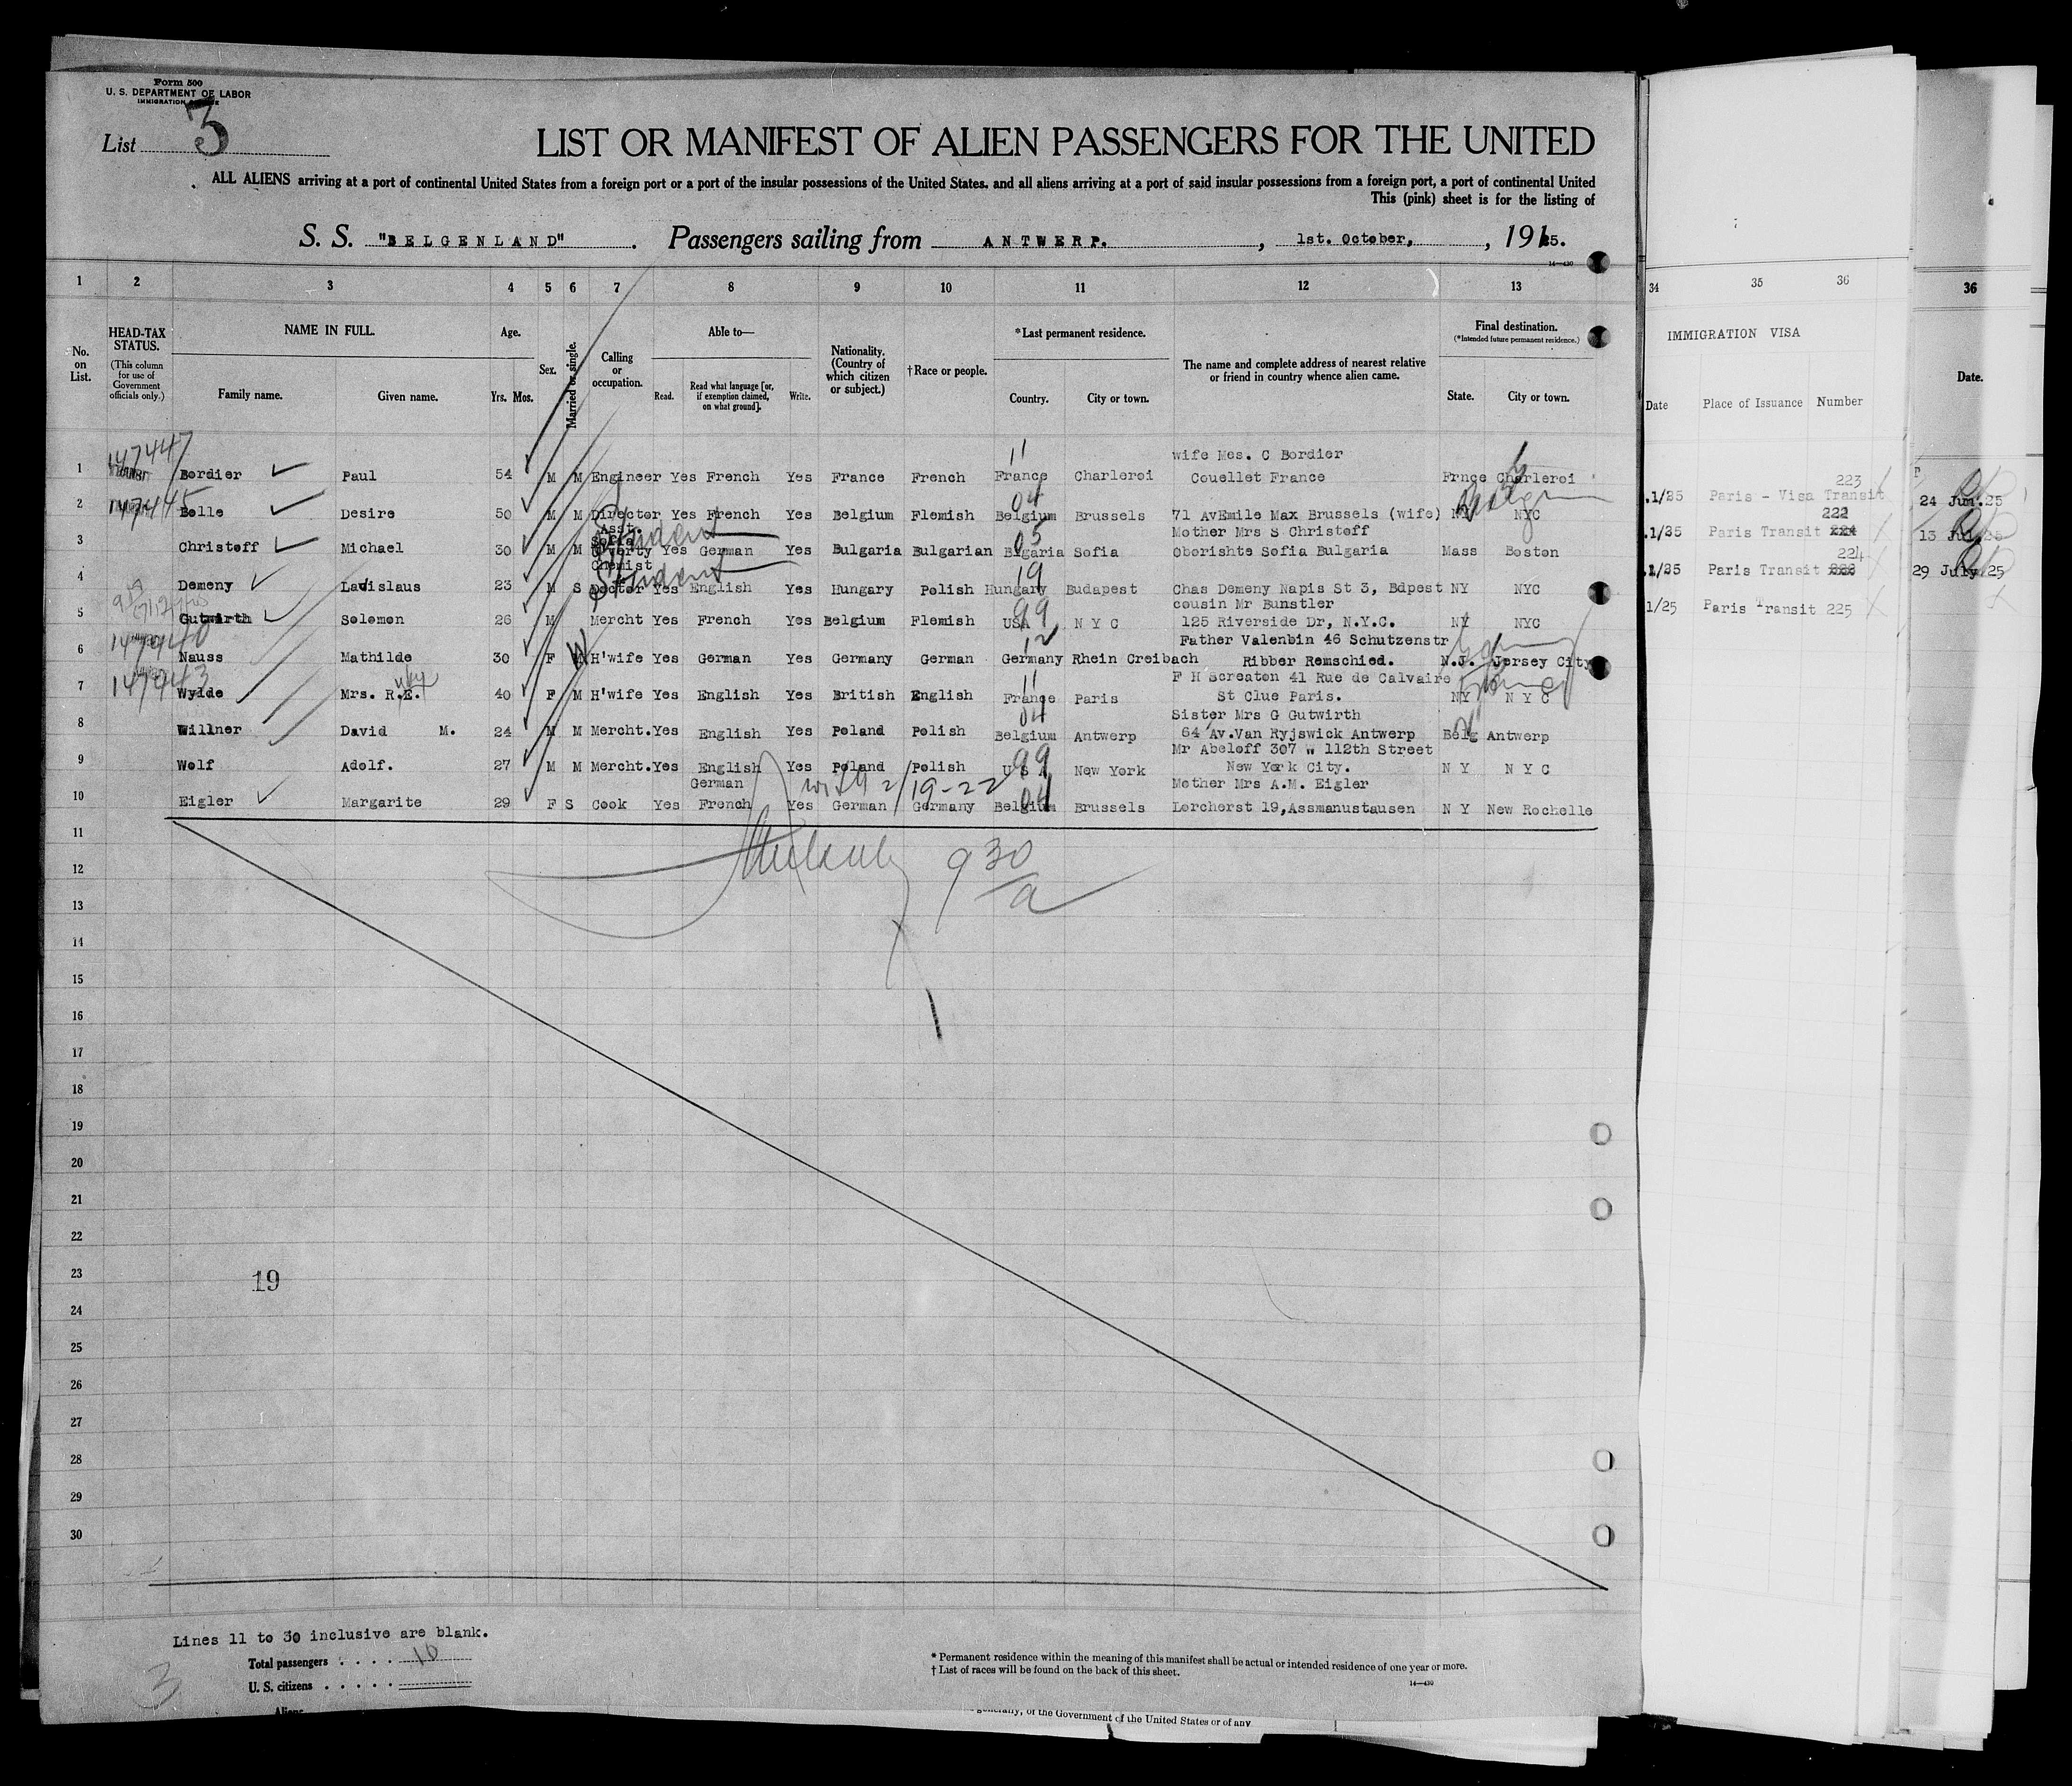 Form 500
U. S. DEPARTMENT OF LABOR
IMMIGRATION
List 3
LIST OR MANIFEST OF ALIEN PASSENGERS FOR THE UNITED
ALL ALIENS arriving at a port of continental United States from a foreign port or a port of the insular possessions of the United States, and all aliens arriving at a port of said insular possessions from a foreign port, a port of continental United
This (pink) sheet is for the listing of
S. S. "BELGENLAND". Passengers sailing from ANTWERP. , 1st. October, , 1925.
14—430
1 2 3 4 5 6 7 8 9 10 11 12 13
No. on List.
HEAD-TAX STATUS.
(This column for use of Government officials only.)
NAME IN FULL.
Family name. Given name.
Age.
Yrs. Mos.
Sex.
Married or single.
Calling or occupation.
Able to—
Read. Read what language [or, if exemption claimed, on what ground]. Write.
Nationality. (Country of which citizen or subject.)
†Race or people.
*Last permanent residence.
Country. City or town.
The name and complete address of nearest relative or friend in country whence alien came.
Final destination.
(*Intended future permanent residence.)
State. City or town.
34 35 36
IMMIGRATION VISA
Date Place of Issuance Number
36
Date.
147447
11 wife Mes. C Bordier
1 Bordier Paul 54 M M Engineer Yes French Yes France French France Charleroi Couellet France Frnce Charleroi
147445 04
2 Belle Desire 50 M M Director Yes French Yes Belgium Flemish Belgium Brussels 71 AvEmile Max Brussels (wife) NY NYC
Asst. Student 05 Mother Mrs S Christoff
3 Christoff Michael 30 M M Yes German Yes Bulgaria Bulgarian Bulgaria Sofia Oborishte Sofia Bulgaria Mass Boston
Chemist Student 19
4 Demeny Ladislaus 23 M S Doctor Yes English Yes Hungary Polish Hungary Budapest Chas Demeny Napis St 3, Bdpest NY NYC
99 cousin Mr Bunstler
5 Gutwirth Solomon 26 M Mercht Yes French Yes Belgium Flemish USA N Y C 125 Riverside Dr, N.Y.C. NY NYC
12 Father Valenbin 46 Schutzenstr
6 Nauss Mathilde 30 F H'wife Yes German Yes Germany German Germany Rhein Creibach Ribber Remschied. N.J. Jersey City
11 F H Screaton 41 Rue de Calvaire
7 Wylde Mrs. R.E. 40 F M H'wife Yes English Yes British English France Paris St Clue Paris. NY N Y C
04 Sister Mrs G Gutwirth
8 Willner David M. 24 M M Mercht. Yes English Yes Poland Polish Belgium Antwerp 64 Av.Van Ryjswick Antwerp Belg Antwerp
99 Mr Abeloff 307 W 112th Street
9 Wolf Adolf. 27 M M Mercht. Yes English Yes Poland Polish U S A New York New York City. N Y N Y C
German with 2/19-22 04 Mother Mrs A.M. Eigler
10 Eigler Margarite 29 F S Cook Yes French Yes German Germany Belgium Brussels Lorchorst 19,Assmanustausen N Y New Rochelle
223
.1/25 Paris - Visa Transit 24 Jun.25
222
.1/25 Paris Transit 13 Jul.25
224
.1/25 Paris Transit 29 July 25
1/25 Paris Transit 225
11
12 930/a
13
14
15
16
17
18
19
20
21
22
23 19
24
25
26
27
28
29
30
Lines 11 to 30 inclusive are blank.
Total passengers . . . . 10
U. S. citizens . . . . .
Aliens
3
* Permanent residence within the meaning of this manifest shall be actual or intended residence of one year or more.
† List of races will be found on the back of this sheet.
14—430
generally, of the Government of the United States or of any